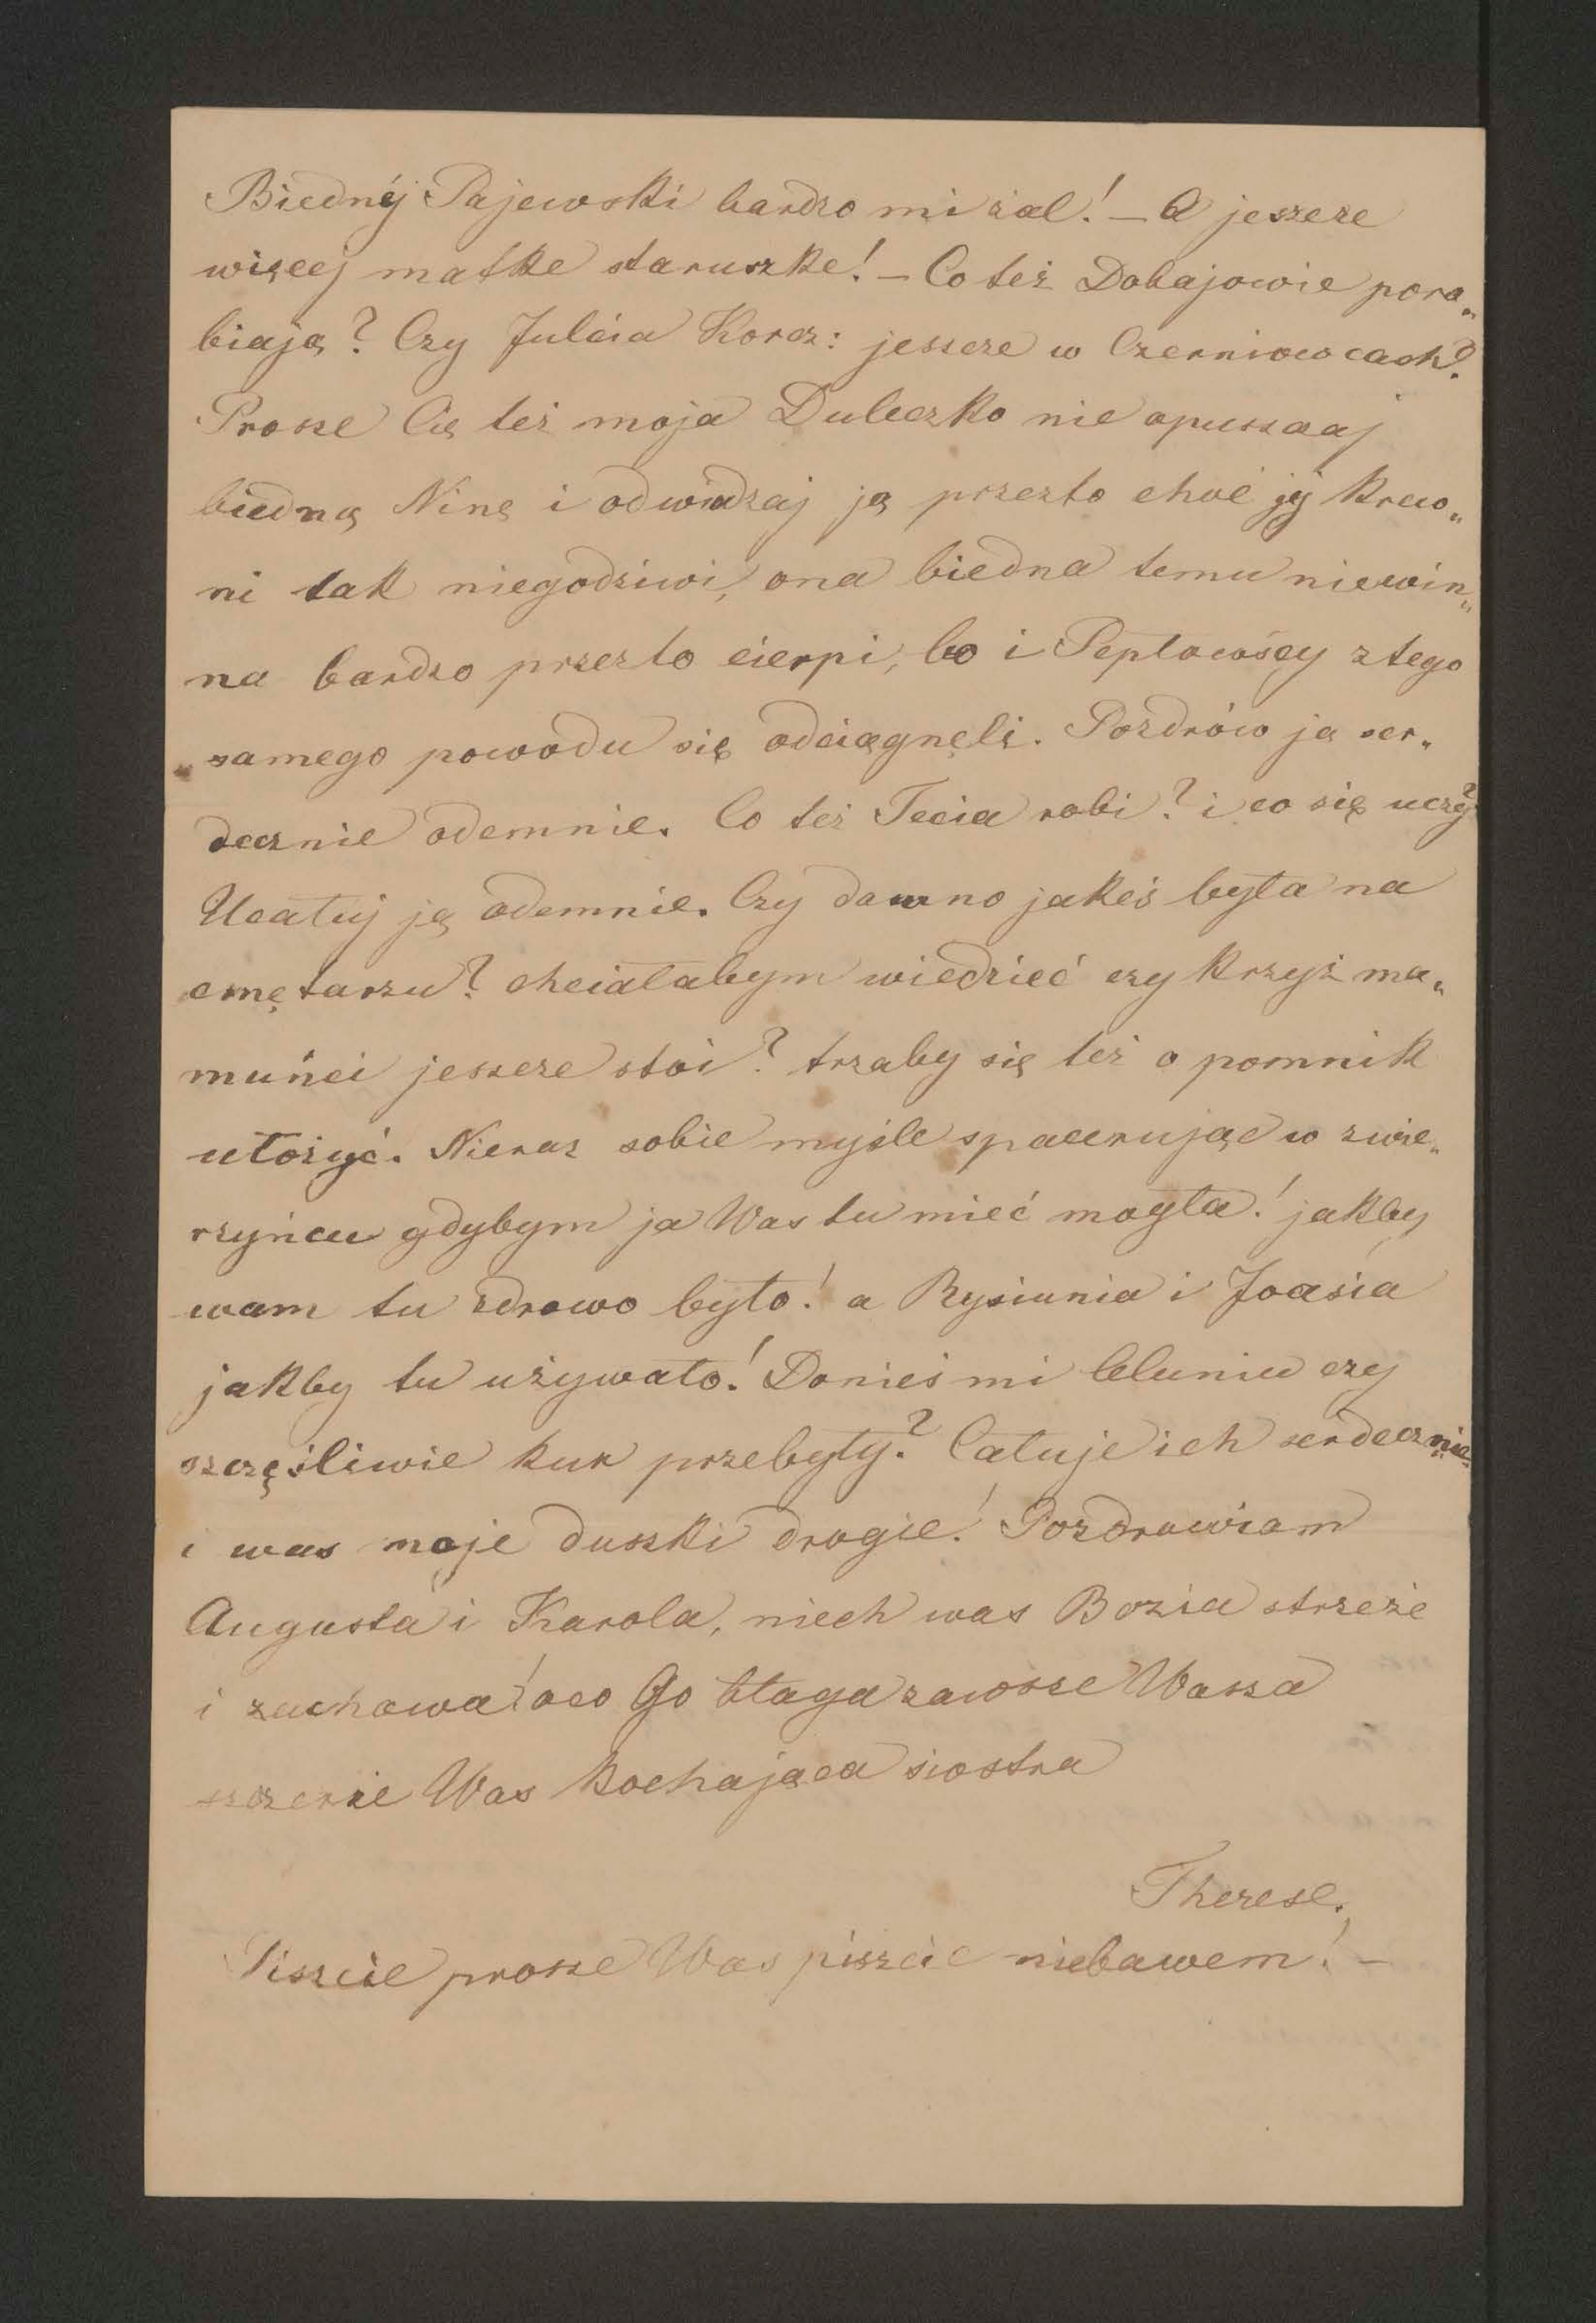 Biednéj Pajewski bardzo mi żal! – A jeszcze
więcej matke staruszke! – Co też Dobajowie pora„
biają? Czy Julcia Korcz: jeszcze w Czerniowcach?
Prosze Cię też moja Duleczko nie opuszczaj
biedną Ninę i odwidzaj ją przezto choć jéj krew„
ni tak niegodziwi, ona biedna temu niewin„
na bardzo przezto cierpi, bo i Pepłowścy z tego
samego powodu się odciągnęli. Pozdrów ją ser„
decznie odemnie. Co też Tecia robi? i co się uczy?
Ucałuj ją odemnie. Czy dawno jakeś była na
cmętarzu? chciałabym wiedzieć czy krzyż ma„
muńci jeszcze stoi? trzaby się też o pomnik
ułożyć. Nieraz sobie myśle spacerując w zwie„
rzyńcu gdybym ja Was tu mieć mogła! jakby
wam tu zdrowo było! a Rysiunia i Joasia
jakby tu używało! Donieś mi Celuniu czy
szczęśliwie kur przebyły? Całuje ich serdecznie
i was moje duszki drogie! Pozdrawiam
Augusta i Karola, niech was Bozia strzeże
i zachowa! oco Go błaga zawsze Wasza
szczerze Was kochająca siostra
Therese.
Piszcie prosze Was piszcie niebawem! –